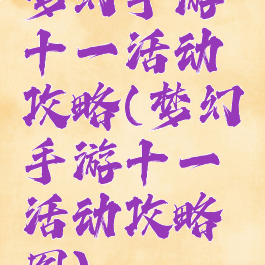 梦幻手游
十一活动
攻略(梦幻
手游十一
活动攻略
图)